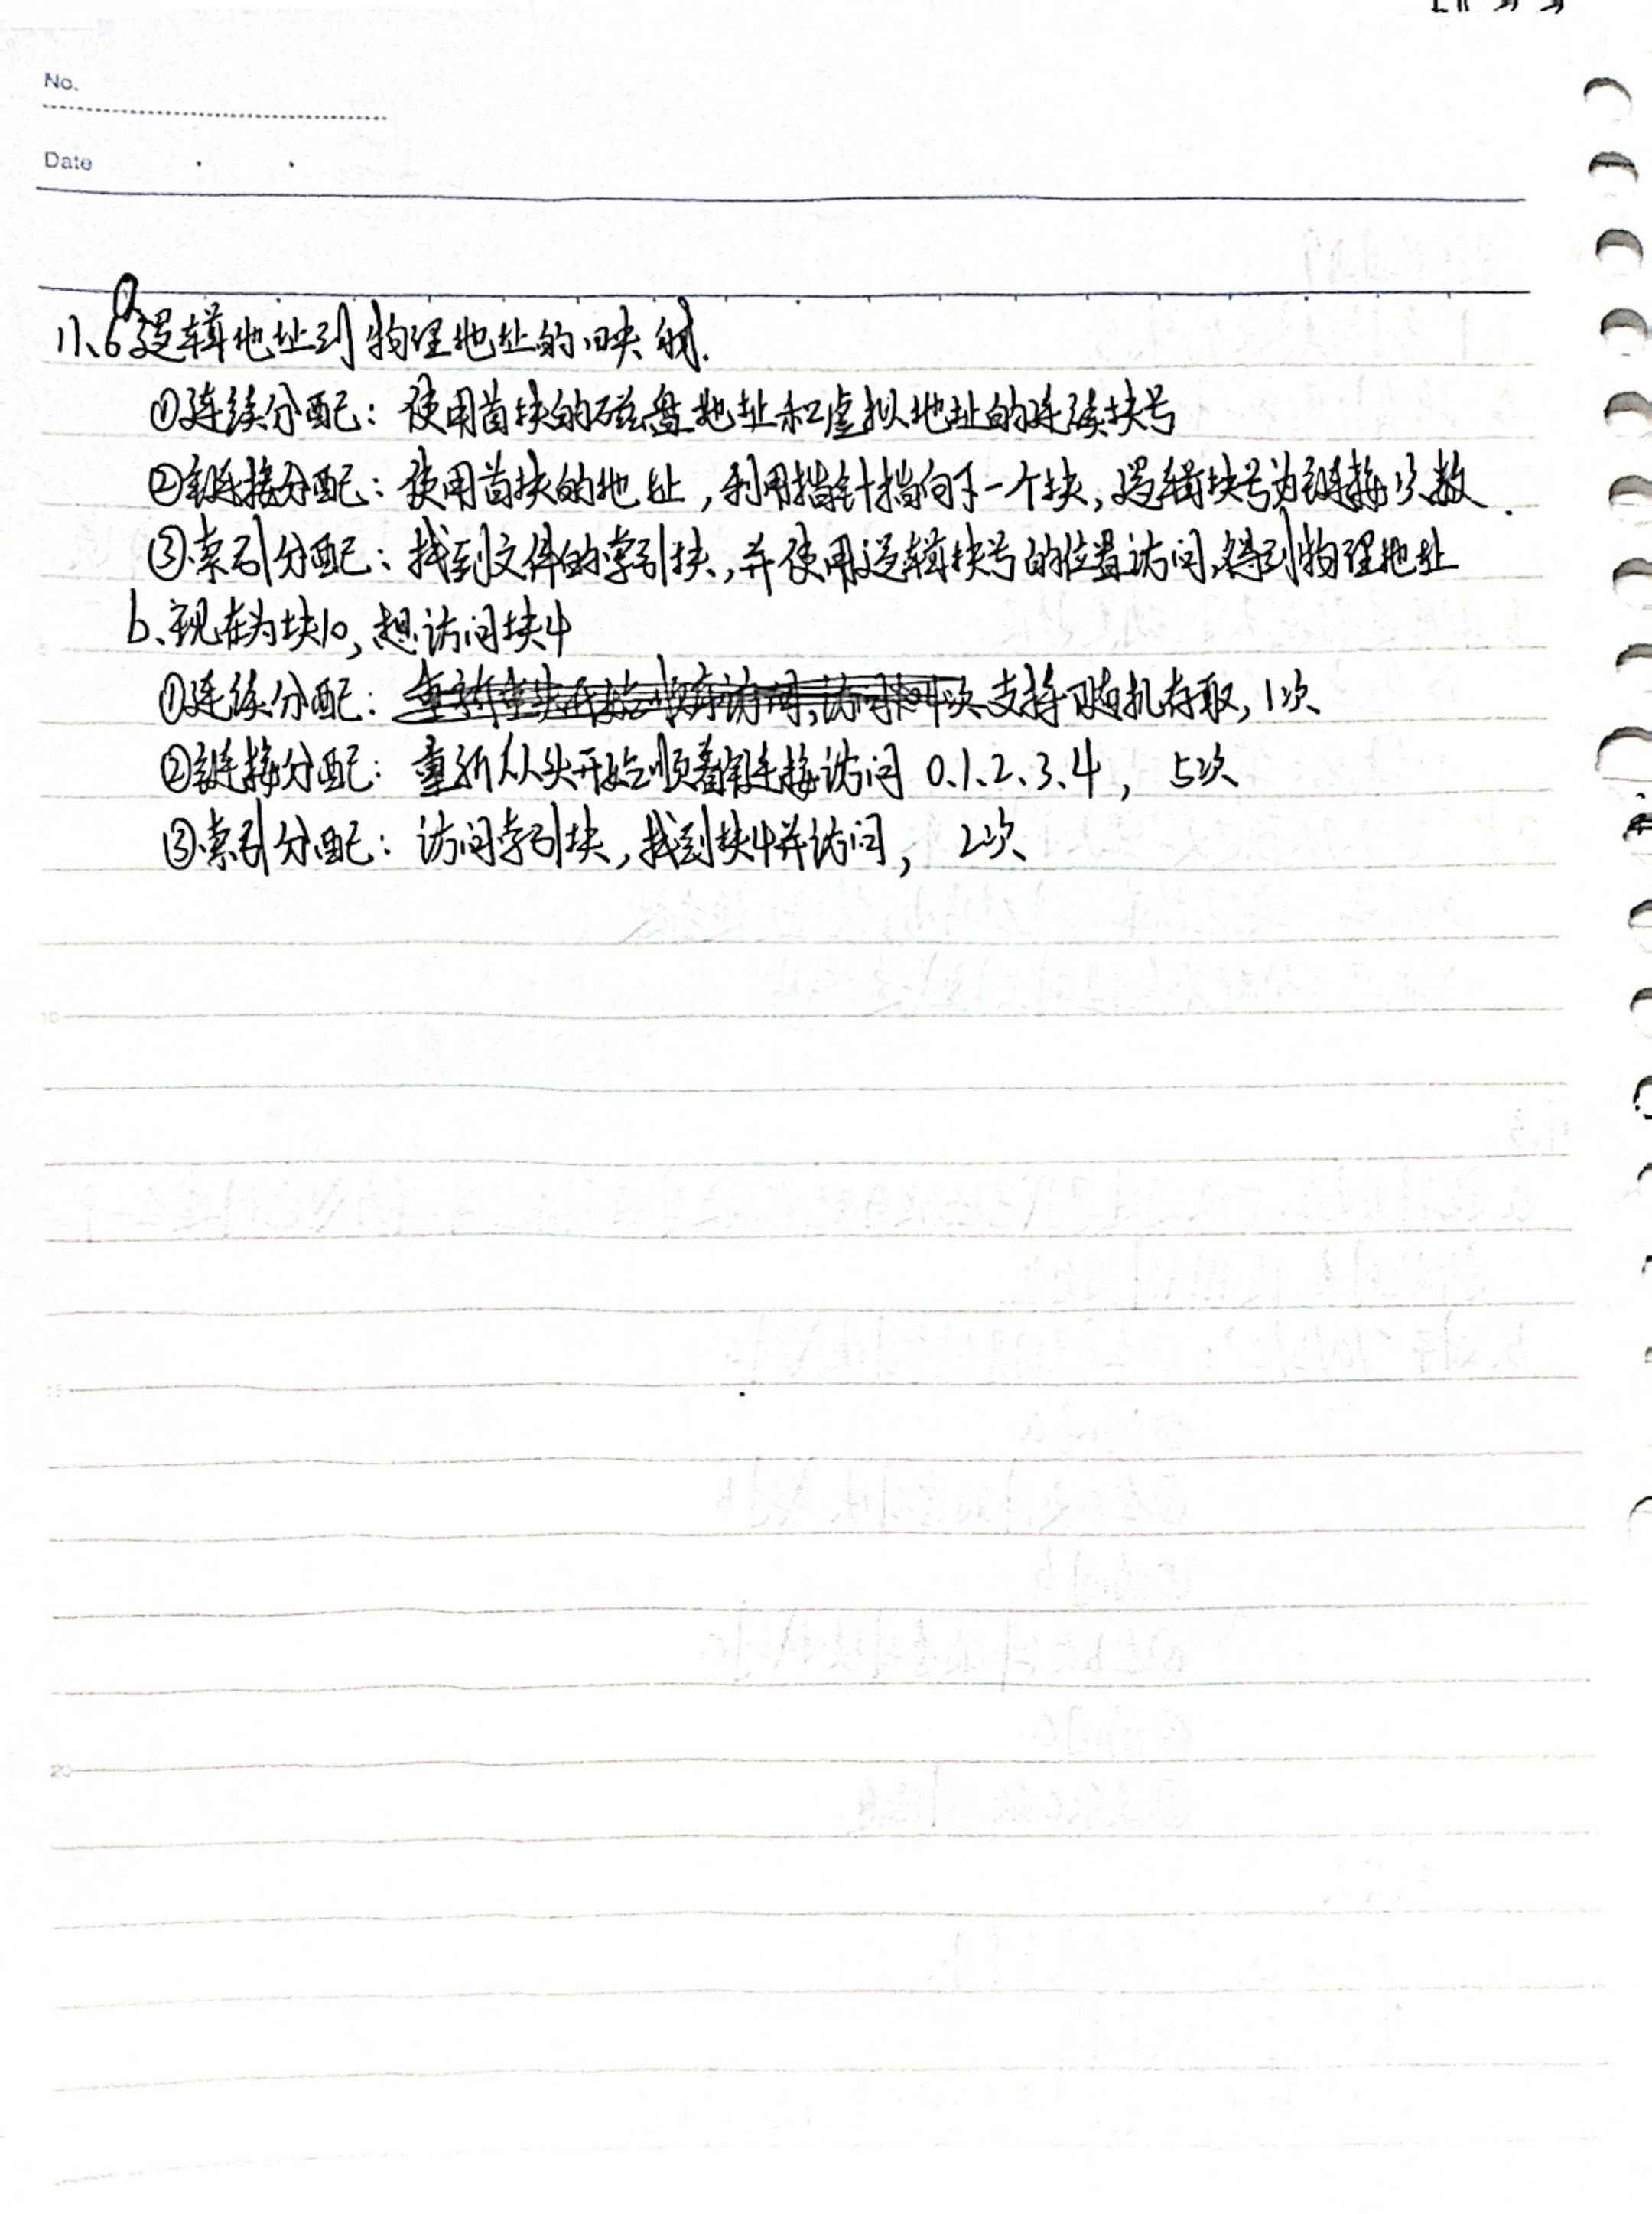 No.
Date
11.6 a 逻辑地址到物理地址的映射.
①连续分配：使用首块的磁盘地址和虚拟地址的连续块号
②链接分配：使用首块的地址，利用指针指向下一个块，逻辑块号为链接次数.
③索引分配：找到文件的索引块，并使用逻辑块号的位置访问，得到物理地址
b、现在为块10，想访问块4
①连续分配：支持随机存取，1次
②链接分配：重新从头开始顺着链接访问 0.1.2.3.4， 5次
③索引分配：访问索引块，找到块4并访问， 2次
10
15
20